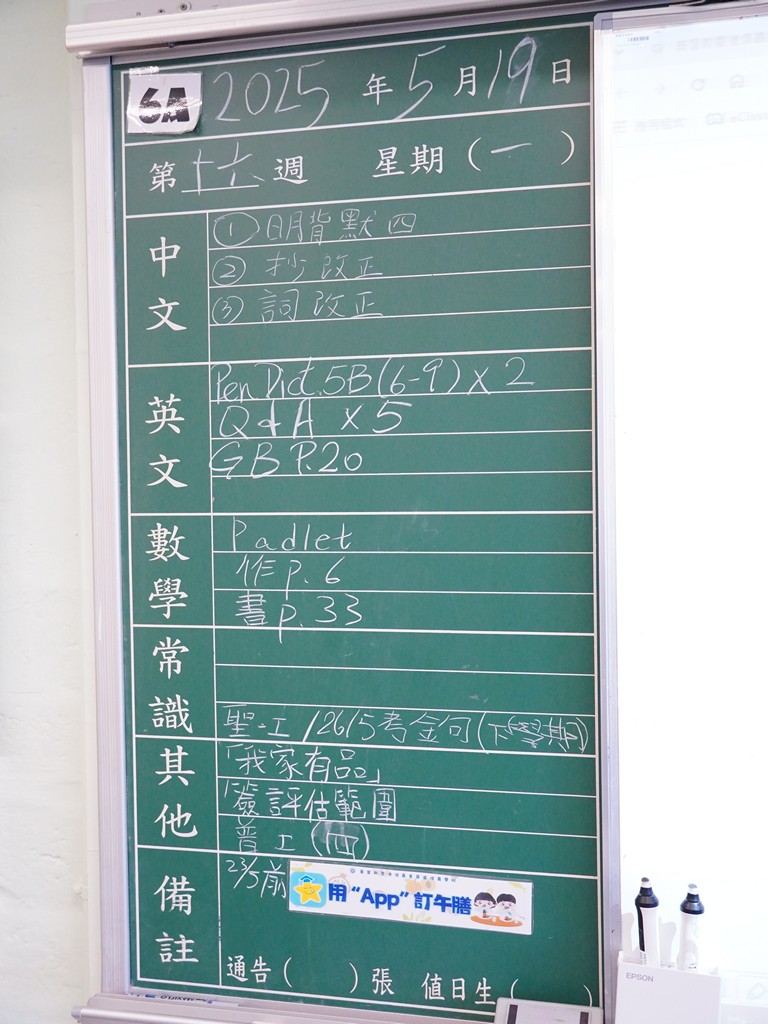 6A 2025年5月19日
第十六週 星期（一）
中文
① 明背默四
② 抄改正
③ 詞改正
英文
Pen Dict. 5B (6-9) x 2
Q & A x 5
GB P.20
數學
Padlet
作 p. 6
書 p. 33
常識
聖工 / 26/5考金句(下學期)
其他
「我家有品」
簽評估範圍
普工(四)
備註
23/5前
用 “App” 訂午膳
通告（ ）張 值日生（ ）
EPSON